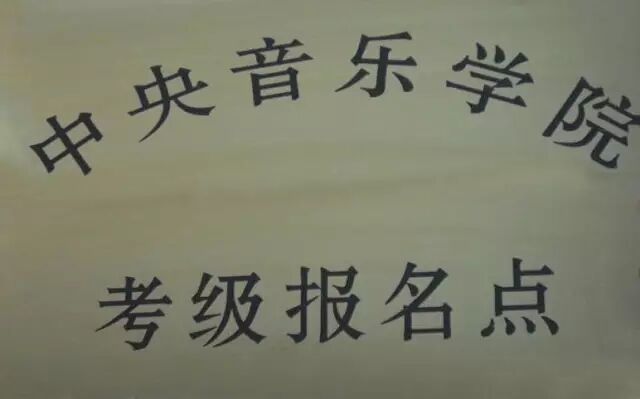 中央音乐学院
考级报名点